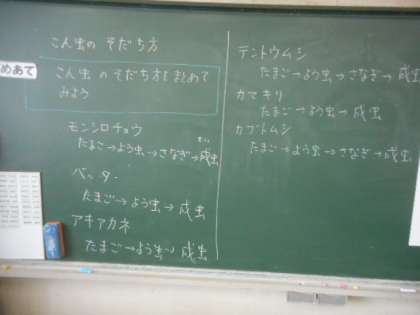 こん虫の そだち方
めあて
こん虫の そだち方をまとめて
みよう
モンシロチョウ
たまご→よう虫→さなぎ→成虫
バッタ
たまご→よう虫→成虫
アキアカネ
たまご→よう虫→成虫
テントウムシ
たまご→よう虫→さなぎ→成虫
カマキリ
たまご→よう虫→成虫
カブトムシ
たまご→よう虫→さなぎ→成虫